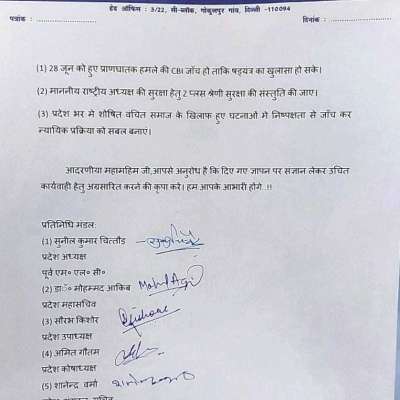 हेड ऑफिस : 3/22, सी-ब्लॉक, गोकुलपुर गांव, दिल्ली -110094
पत्रांक : दिनांक :
(1) 28 जून को हुए प्राणघातक हमले की CBI जाँच हो ताकि षड़यत्र का खुलासा हो सके।
(2) माननीय राष्ट्रीय अध्यक्ष की सुरक्षा हेतु 2 प्लस श्रेणी सुरक्षा की संस्तुति की जाए।
(3) प्रदेश भर मे शोषित वंचित समाज के खिलाफ हुए घटनाओं मे निष्पक्षता से जाँच कर
न्यायिक प्रक्रिया को सबल बनाएं।
आदरणीया महामहिम जी,आपसे अनुरोध है कि दिए गए ज्ञापन पर संज्ञान लेकर उचित
कार्यवाही हेतु अग्रसारित करने की कृपा करें। हम आपके आभारी होंगे..!!
प्रतिनिधि मंडल:
(1) सुनील कुमार चित्तौड़
प्रदेश अध्यक्ष
पूर्व एम० एल० सी०
(2) डॉ० मोहम्मद आकिब
प्रदेश महासचिव
(3) सौरभ किशोर
प्रदेश उपाध्यक्ष
(4) अमित गौतम
प्रदेश कोषाध्यक्ष
(5) शानेन्द्र वर्मा